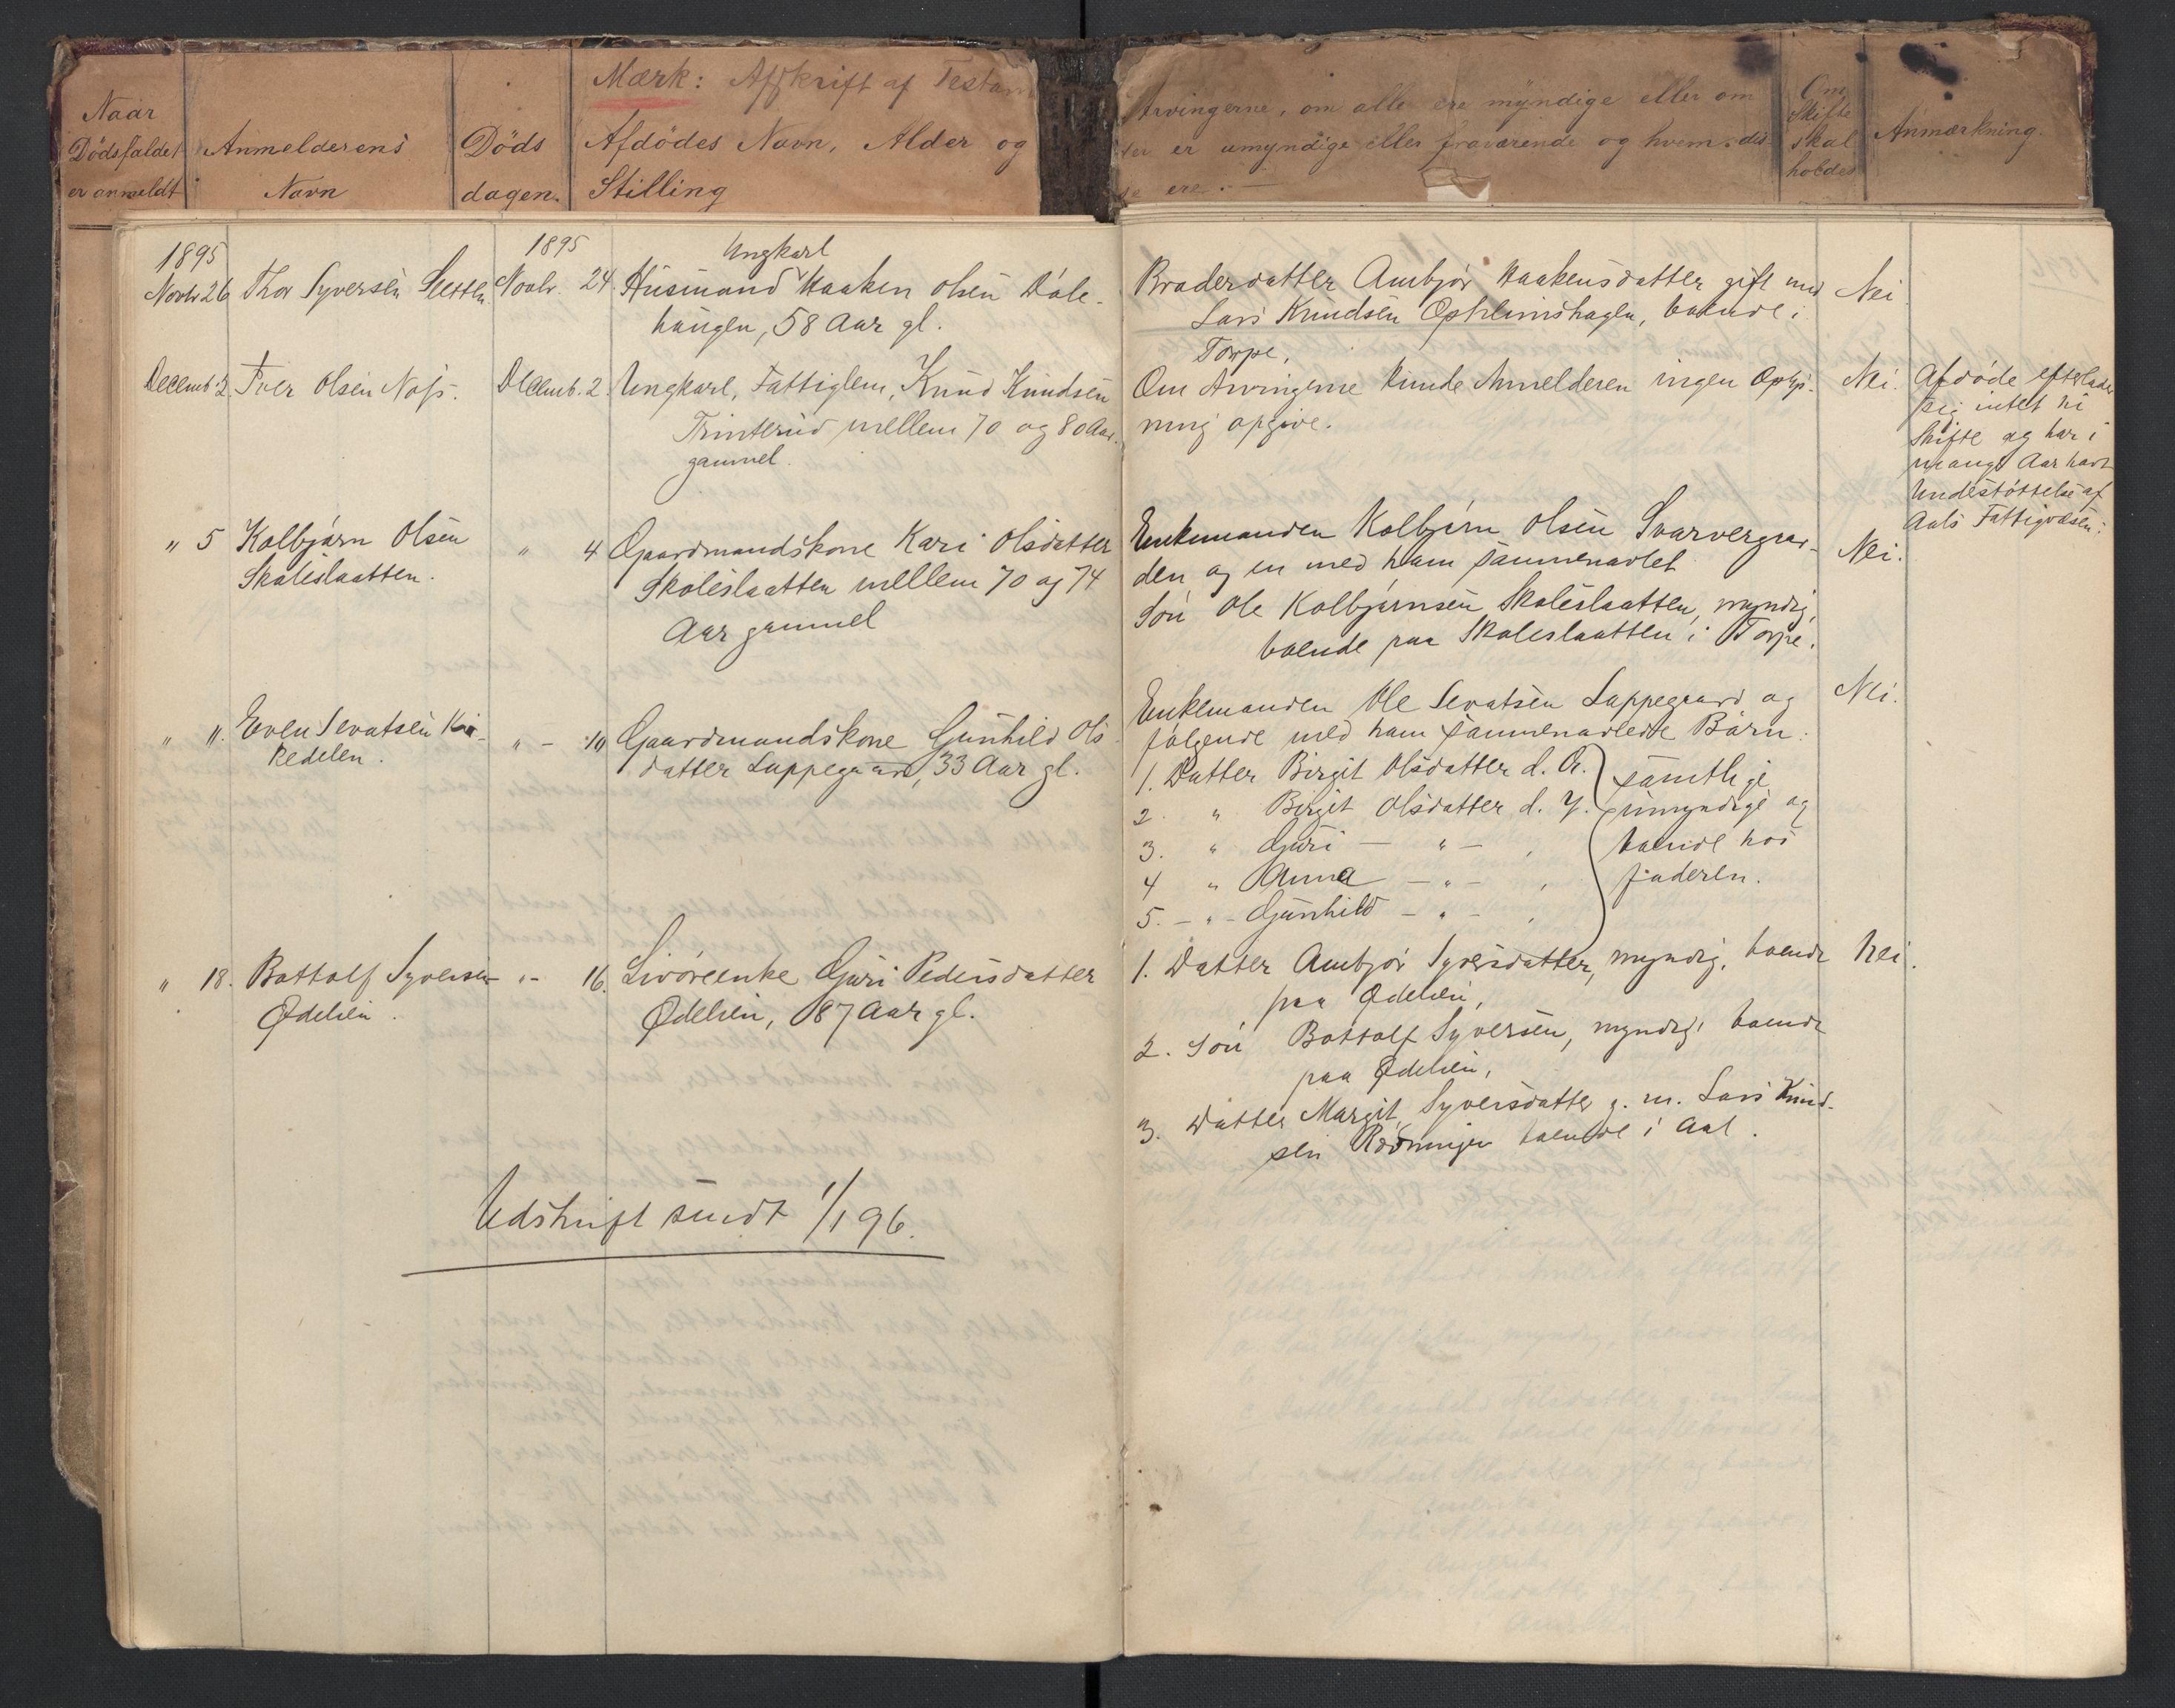 Naar
Dödsfaldet
er anmeldt
Anmelderens
Navn
Döds
dagen.
Mærk: Afskrift af Testam
Afdödes Navn, Alder og
Stilling
Arvingerne, om alle ere myndige eller om
er umyndige eller fraværende og hvem dis-
se ere. —
Om
Skifte
skal
holdes
Anmærkning.
1895
Novbr 26
Thor Syversen
1895
Novbr. 24
Ungkarl
Husmand Haaken Olsen Dåle-
haugen, 58 Aar gl.
Broderdatter Ambjør Haakensdatter gift med
Lars Knudsen Opheimshagen, boende i
Torpe.
Nei.
Decemb. 2.
Iver Olsen
Decemb. 2.
Ungkarl, Fattiglem, Knud Knudsen
Trinterud mellem 70 og 80 Aar
gammel.
Om Arvingerne kunde Anmelderen ingen Oplys-
ning opgive.
Nei.
Afdøde efterlader
sig intet til
Skifte og har i
mange Aar havt
Undestøttelse af
Aals Fattigvæsen.
" 5
Kolbjørn Olsen
Skoleslaatten.
" 4
Gaardmandskone Kari Olsdatter
Skoleslaatten mellem 70 og 74
Aar gammel
Enkemanden Kolbjørn Olsen Svarvergaar-
den og en med ham sammenavlet
Søn Ole Kolbjørnsen Skoleslaatten, myndig,
boende paa Skoleslaatten i Torpe.
Nei.
" 11.
Even Sevatsen
" - 10
Gaardmandskone Gunhild Ols-
datter Luppegaard, 33 Aar gl.
Enkemanden Ole Sevatsen Luppegaard og
følgende med ham sammenavlede Børn:
1. Datter Birgit Olsdatter d. Æ.
2. " Birgit Olsdatter d. Y.
3. " Guri — " — ,
4 " Anna — " — ,
5. — " — Gunhild — " — ,
samtlige
umyndige og
boende hos
faderen.
Nei.
" 18.
Bottolf Syversen
Ødelien.
" - 16.
Livøreenke Guri Pedersdatter
Ødelien, 87 Aar gl.
1. Datter Ambjør Syversdatter, myndig, boende
paa Ødelien,
2. Søn Bottolf Syversen, myndig, boende
paa Ødelien,
3. Datter Margit Syversdatter g. m. Lars Knud-
sen Rødningen boende i Aal.
Nei.
Udskrift sendt 1/1 96.